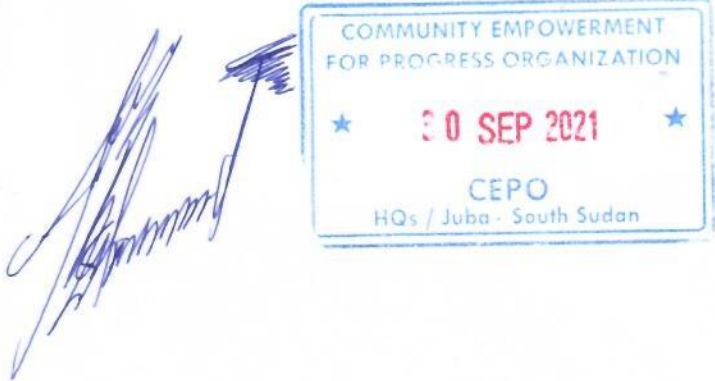 COMMUNITY EMPOWERMENT
FOR PROGRESS ORGANIZATION
★ 30 SEP 2021 ★
CEPO
HQs / Juba - South Sudan